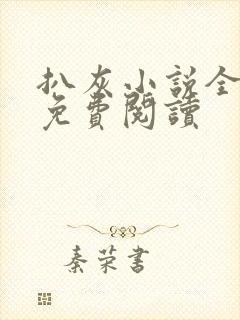 扒灰小説全
免費閱讀
秦荣書